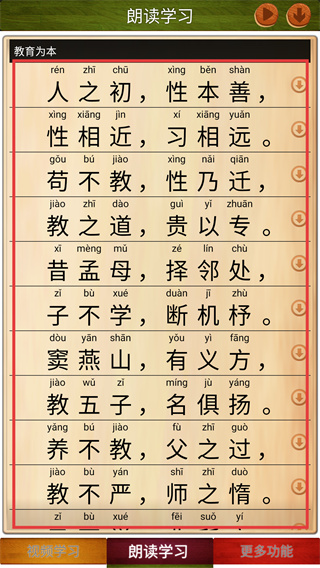 朗读学习
教育为本
rén zhī chū xìng běn shàn
人之初，性本善，
xìng xiāng jìn xí xiāng yuǎn
性相近，习相远。
gǒu bú jiào xìng nǎi qiān
苟不教，性乃迁，
jiào zhī dào guì yǐ zhuān
教之道，贵以专。
xī mèng mǔ zé lín chù
昔孟母，择邻处，
zǐ bù xué duàn jī zhù
子不学，断机杼。
dòu yān shān yǒu yì fāng
窦燕山，有义方，
jiào wǔ zǐ míng jù yáng
教五子，名俱扬。
yǎng bú jiào fù zhī guò
养不教，父之过，
jiào bù yán shī zhī duò
教不严，师之惰。
zǐ bù xué fēi suǒ yí
视频学习 朗读学习 更多功能